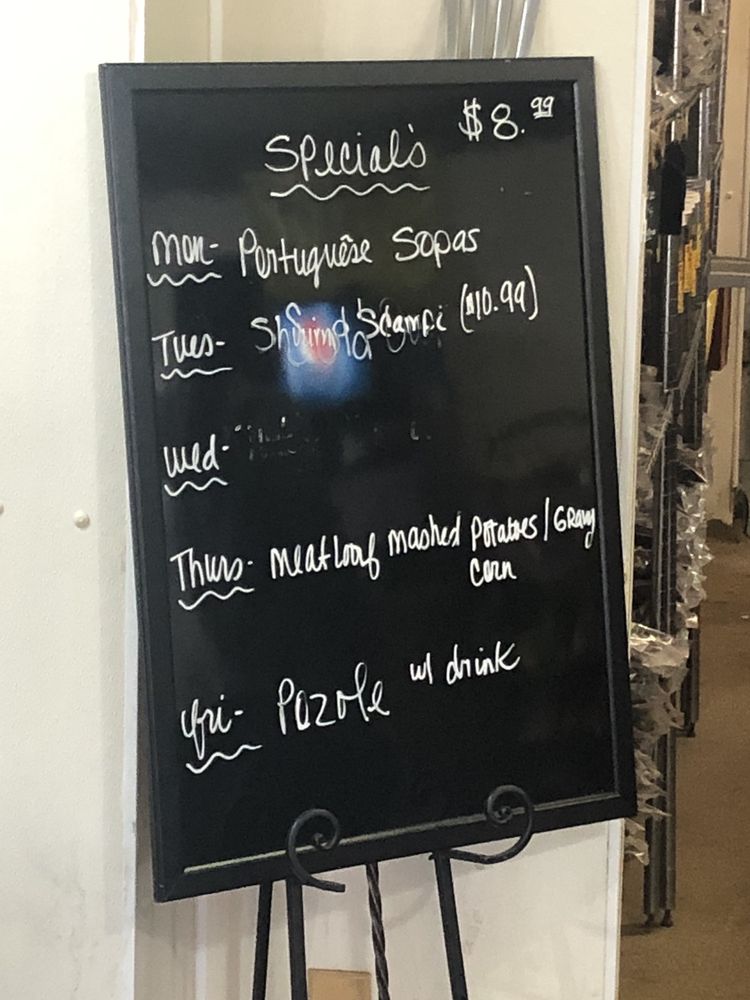 Special's $8.99
Mon- Portuguêse Sopas
Tues- Shrimp Scampi ($10.99)
Wed-
Thurs- Meatloaf mashed Potatoes / Gravy
corn
Fri- Pozole w/ drink